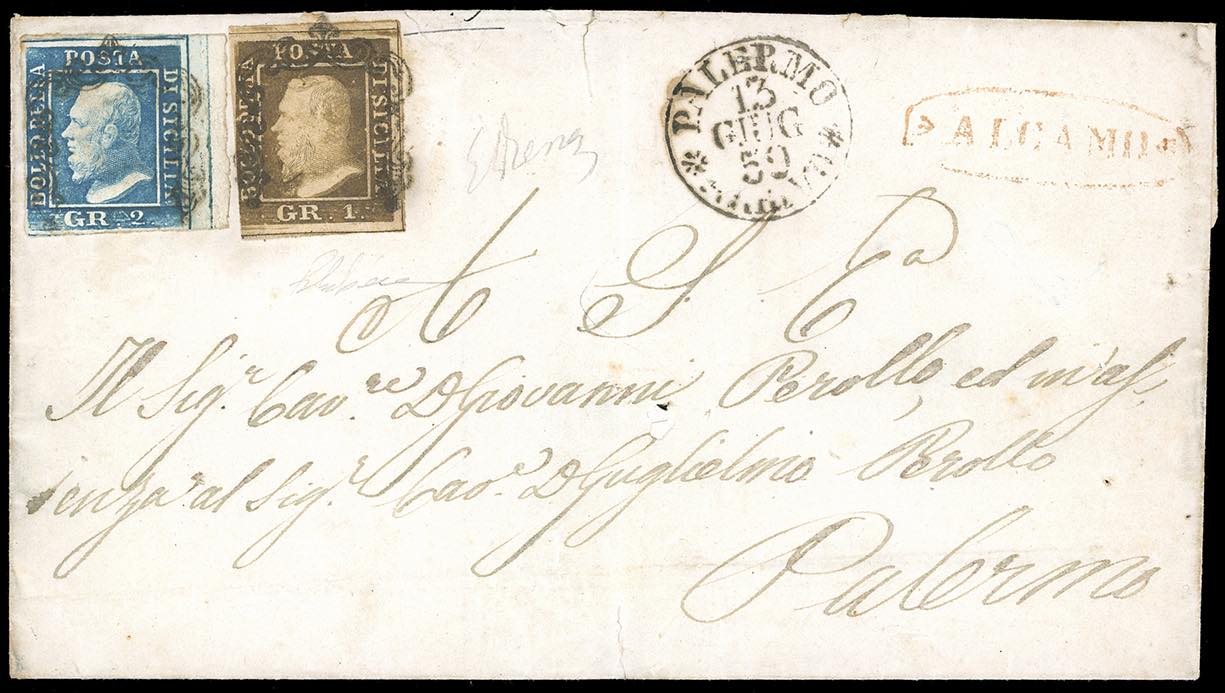 POSTA
BOLLO DI SICILIA
GR. 2.
POSTA
BOLLO DI SICILIA
GR. 1.
PALERMO
13
GIUG
59
ARRIVO
ALCAMO
A S. E.
Il Sig.r Cav.re D Giovanni Perollo, ed in as,
senza al Sig.r Cav.e D Guglielmo Perollo
Palermo